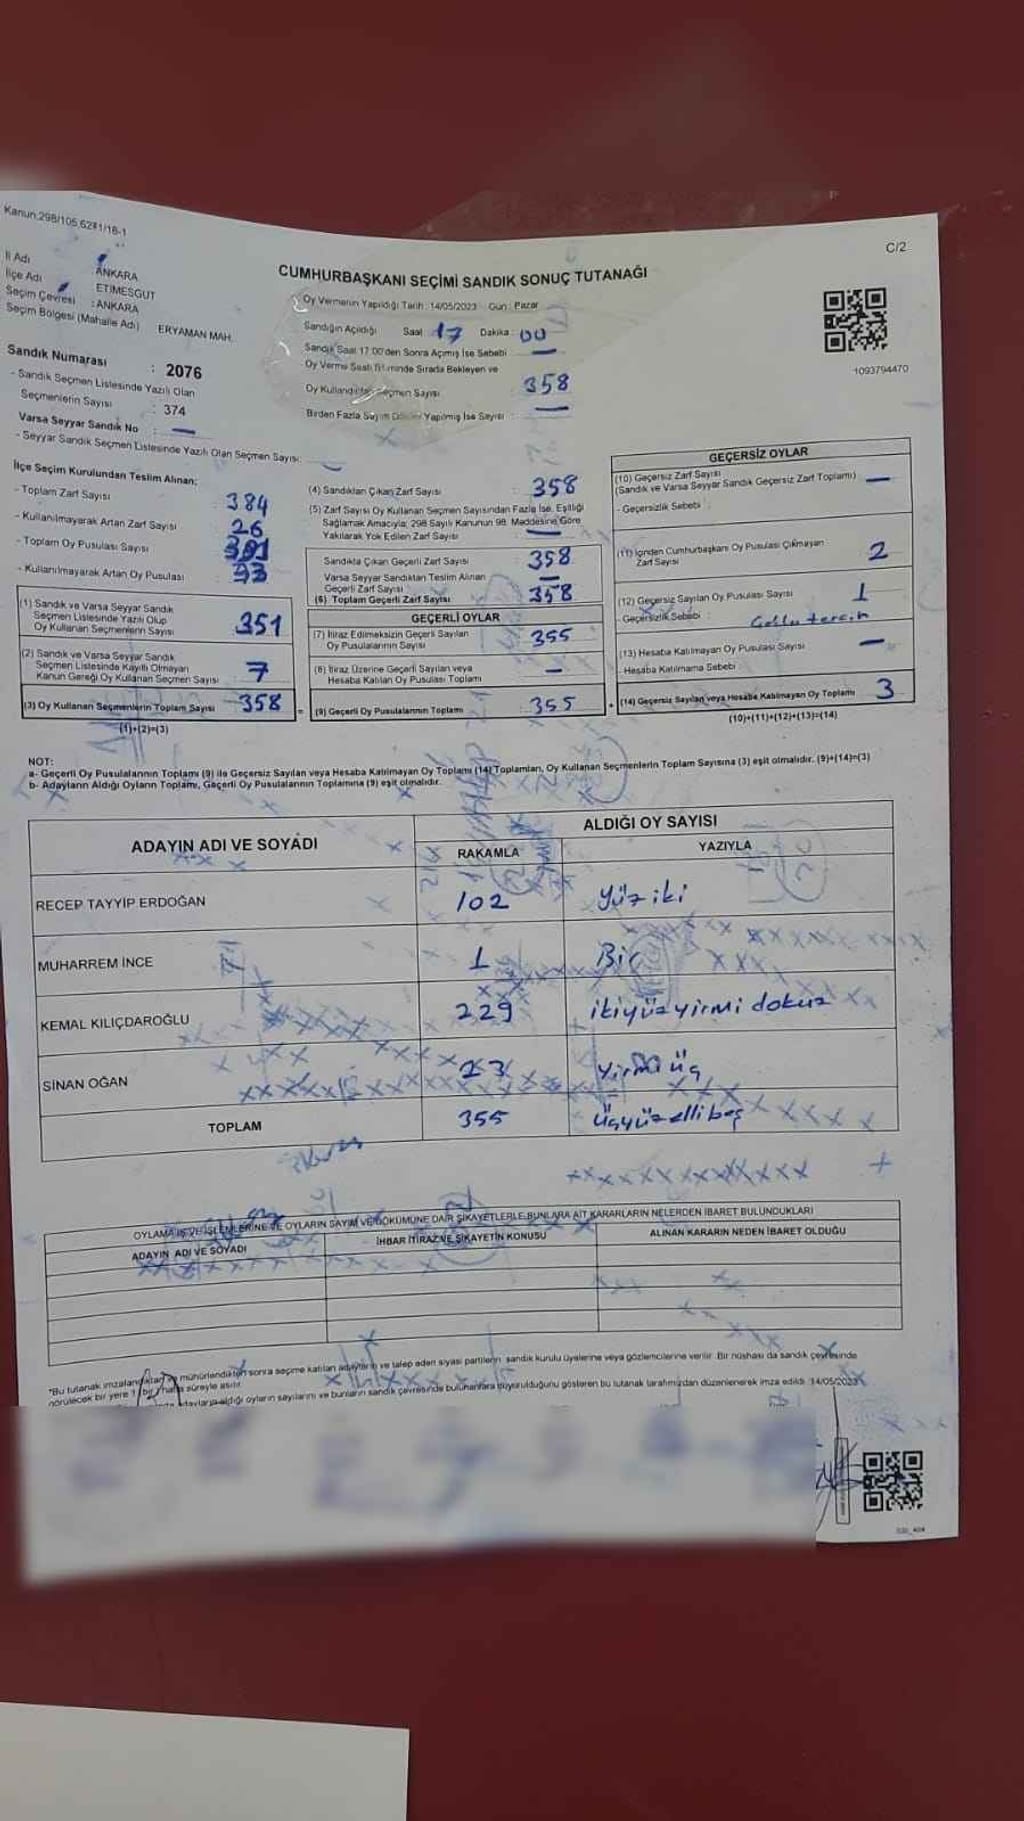 Kanun:298/105,6271/18-1
C/2
İl Adı : ANKARA
İlçe Adı : ETİMESGUT
Seçim Çevresi : ANKARA
Seçim Bölgesi (Mahalle Adı) ERYAMAN MAH.
Sandık Numarası : 2076
- Sandık Seçmen Listesinde Yazılı Olan
Seçmenlerin Sayısı : 374
Varsa Seyyar Sandık No : —
- Seyyar Sandık Seçmen Listesinde Yazılı Olan Seçmen Sayısı: —
CUMHURBAŞKANI SEÇİMİ SANDIK SONUÇ TUTANAĞI
Oy Vermenin Yapıldığı Tarih : 14/05/2023 Gün : Pazar
Sandığın Açıldığı Saat 17 Dakika : 00
Sandık Saat 17:00'den Sonra Açımış İse Sebebi —
Oy Verme Saati Bitiminde Sırada Bekleyen ve
Oy Kullandırılan Seçmen Sayısı 358
Birden Fazla Sayım Dökümü Yapılmış İse Sayısı : —
1093794470
İlçe Seçim Kurulundan Teslim Alınan;
- Toplam Zarf Sayısı : 384
- Kullanılmayarak Artan Zarf Sayısı : 26
- Toplam Oy Pusulası Sayısı :
- Kullanılmayarak Artan Oy Pusulası :
(1) Sandık ve Varsa Seyyar Sandık
Seçmen Listesinde Yazılı Olup
Oy Kullanan Seçmenlerin Sayısı 351
(2) Sandık ve Varsa Seyyar Sandık
Seçmen Listesinde Kayıtlı Olmayan
Kanun Gereği Oy Kullanan Seçmen Sayısı 7
(3) Oy Kullanan Seçmenlerin Toplam Sayısı 358
(1)+(2)=(3)
(4) Sandıktan Çıkan Zarf Sayısı : 358
(5) Zarf Sayısı Oy Kullanan Seçmen Sayısından Fazla İse, Eşitliği
Sağlamak Amacıyla; 298 Sayılı Kanunun 98. Maddesine Göre
Yakılarak Yok Edilen Zarf Sayısı —
Sandıkta Çıkan Geçerli Zarf Sayısı 358
Varsa Seyyar Sandıktan Teslim Alınan
Geçerli Zarf Sayısı —
(6) Toplam Geçerli Zarf Sayısı 358
GEÇERLİ OYLAR
(7) İtiraz Edilmeksizin Geçerli Sayılan
Oy Pusulasının Sayısı 355
(8) İtiraz Üzerine Geçerli Sayılan veya
Hesaba Katılan Oy Pusulası Toplamı —
= (9) Geçerli Oy Pusulalarının Toplamı 355
GEÇERSİZ OYLAR
(10) Geçersiz Zarf Sayısı
(Sandık ve Varsa Seyyar Sandık Geçersiz Zarf Toplamı) —
- Geçersizlik Sebebi :
(11) İçinden Cumhurbaşkanı Oy Pusulası Çıkmayan
Zarf Sayısı 2
(12) Geçersiz Sayılan Oy Pusulası Sayısı 1
- Geçersizlik Sebebi : Çoklu tercih
(13) Hesaba Katılmayan Oy Pusulası Sayısı —
- Hesaba Katılmama Sebebi :
+ (14) Geçersiz Sayılan veya Hesaba Katılmayan Oy Toplamı 3
(10)+(11)+(12)+(13)=(14)
NOT:
a- Geçerli Oy Pusulalarının Toplamı (9) ile Geçersiz Sayılan veya Hesaba Katılmayan Oy Toplamı (14) Toplamları, Oy Kullanan Seçmenlerin Toplam Sayısına (3) eşit olmalıdır. (9)+(14)=(3)
b- Adayların Aldığı Oyların Toplamı, Geçerli Oy Pusulalarının Toplamına (9) eşit olmalıdır.
ADAYIN ADI VE SOYADI
ALDIĞI OY SAYISI
RAKAMLA YAZIYLA
RECEP TAYYİP ERDOĞAN 102 Yüz iki
MUHARREM İNCE 1 Bir
KEMAL KILIÇDAROĞLU 229 ikiyüz yirmi dokuz
SİNAN OĞAN 23 Yirmi üç
TOPLAM 355 Üçyüz elli beş
OYLAMA İŞ VE İŞLEMLERİNE VE OYLARIN SAYIM VE DÖKÜMÜNE DAİR ŞİKAYETLERLE BUNLARA AİT KARARLARIN NELERDEN İBARET BULUNDUKLARI
ADAYIN ADI VE SOYADI İHBAR İTİRAZ VE ŞİKAYETİN KONUSU ALINAN KARARIN NEDEN İBARET OLDUĞU
"Bu tutanak imzalandıktan ve mühürlendikten sonra seçime katılan adayların ve talep eden siyasi partilerin sandık kurulu üyelerine veya gözlemcilerine verilir. Bir nüshası da sandık çevresinde
görülecek bir yere 1 (bir) hafta süreyle asılır.
adayların aldığı oyların sayılarını ve bunların sandık çevresinde bulunanlara duyurulduğunu gösteren bu tutanak tarafımızdan düzenlenerek imza edildi. 14/05/2023